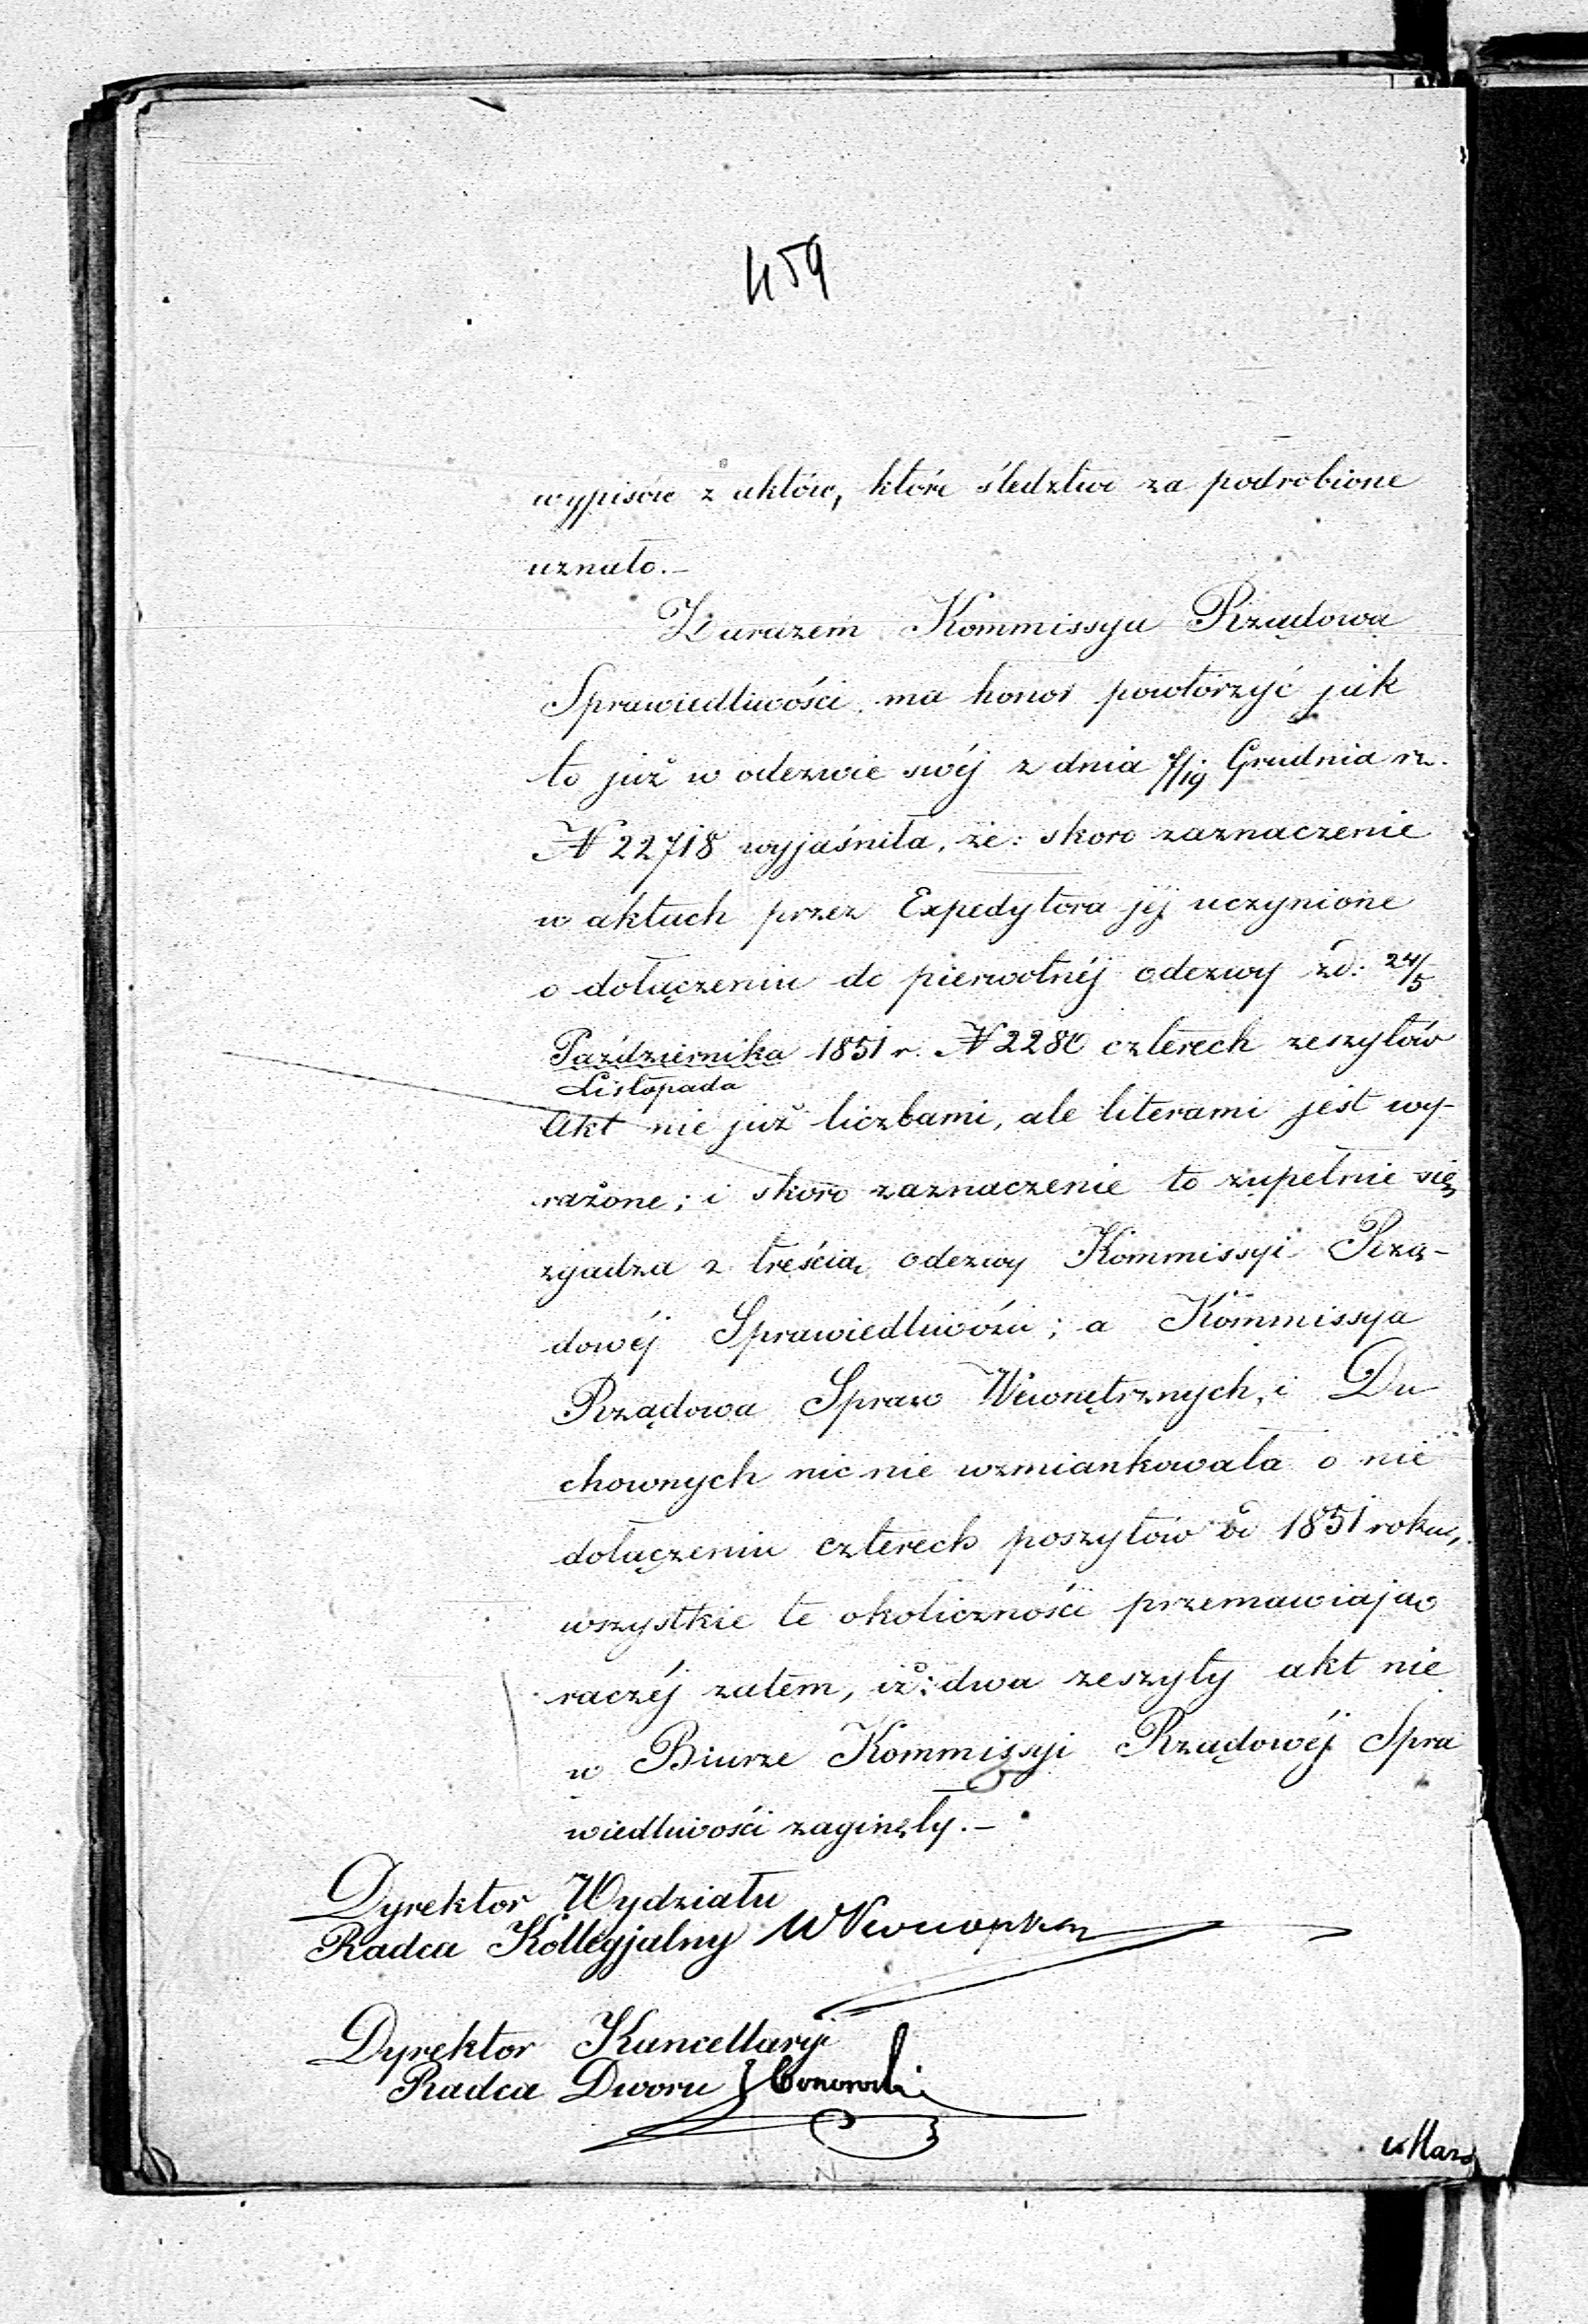 459
wypisów z aktów, które śledztwo za podrobione
uznało.—
Zarazem Kommissya Rządowa
Sprawiedliwości ma honor powtórzyć jak
to już w odezwie swéj z dnia 7/19 Grudnia rz.
N 22718 wyjaśniła, że: skoro zaznaczenie
w aktach przez Expedytora jéj uczynione
o dołączeniu do pierwotnéj odezwy zd: 24/5
Października 1851 r. N 2280 czterech zeszytów
Listopada
Akt nie już liczbami, ale literami jest wy-
rażone; i skoro zaznaczenie to zupełnie się
zgadza z treścią odezwy Kommissyi Rzą-
dowéj Sprawiedliwości; a Kommissya
Rządowa Spraw Wewnętrznych i Du
chownych nic nie wzmiankowała o nie
dołączeniu czterech poszytów od 1851 roku,
wszystkie te okoliczności przemawiają
raczéj zatem, iż: dwa zeszyty akt nie
w Biurze Kommissyi Rządowéj Spra
wiedliwości zaginęły.—
Dyrektor Wydziału
Radca Kollegjalny
Dyrektor Kancellaryi
Radca Dworu